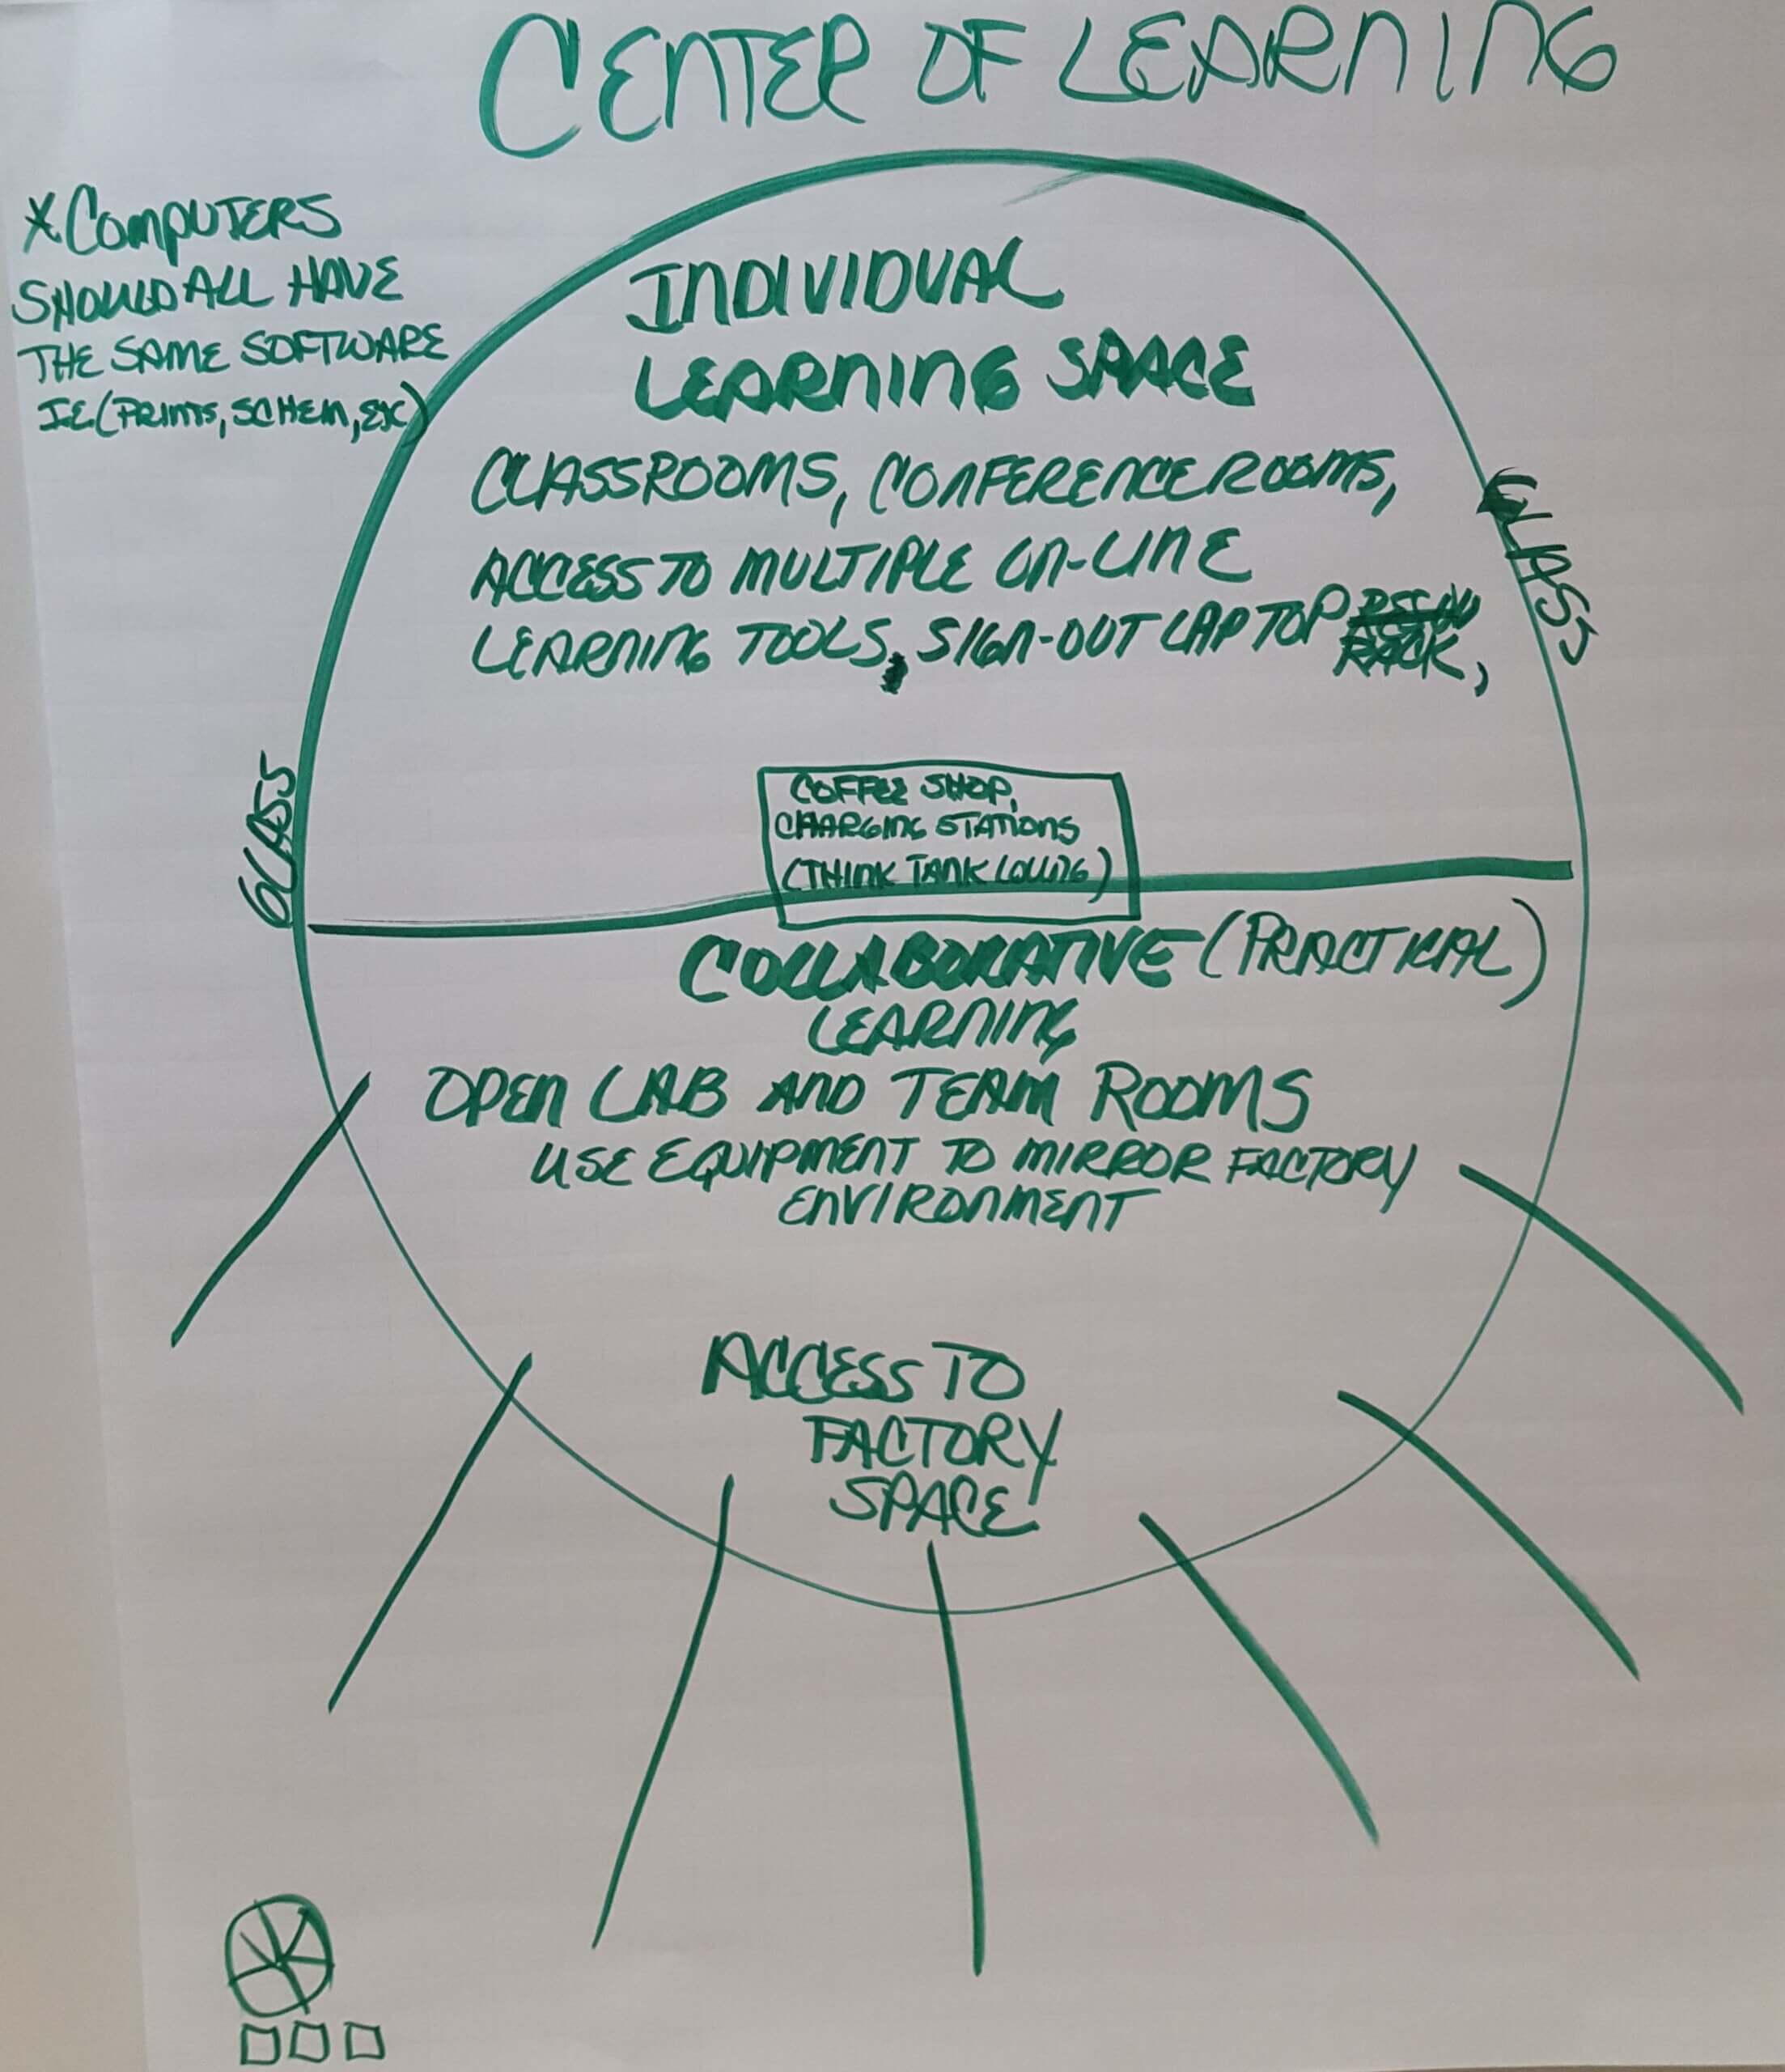 CENTER OF LEARNING
*COMPUTERS
SHOULD ALL HAVE
THE SAME SOFTWARE
IE (PRINTS, SCHEM, EXC)
INDIVIDUAL
LEARNING SPACE
CLASSROOMS, CONFERENCE ROOMS,
ACCESS TO MULTIPLE ON-LINE
LEARNING TOOLS, SIGN-OUT LAP TOP
RACK,
GLASS
GLASS
COFFEE SHOP,
CHARGING STATIONS
(THINK TANK LOUNG)
COLLABORATIVE (PRACTICAL)
LEARNING
OPEN LAB AND TEAM ROOMS
USE EQUIPMENT TO MIRROR FACTORY
ENVIRONMENT
ACCESS TO
FACTORY
SPACE